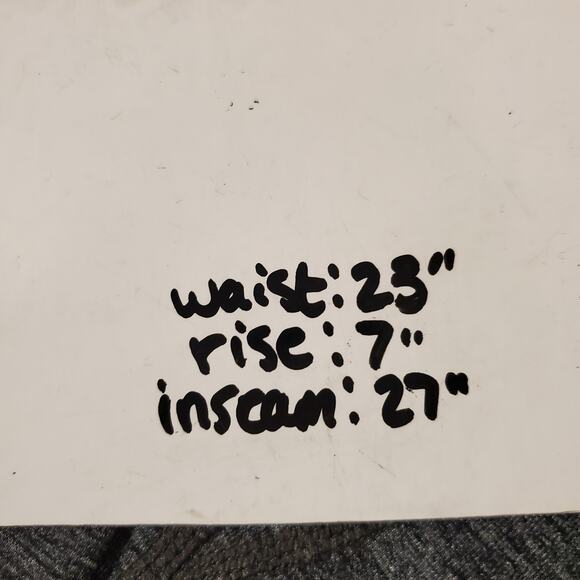 waist: 23"
rise: 7"
inseam: 27"